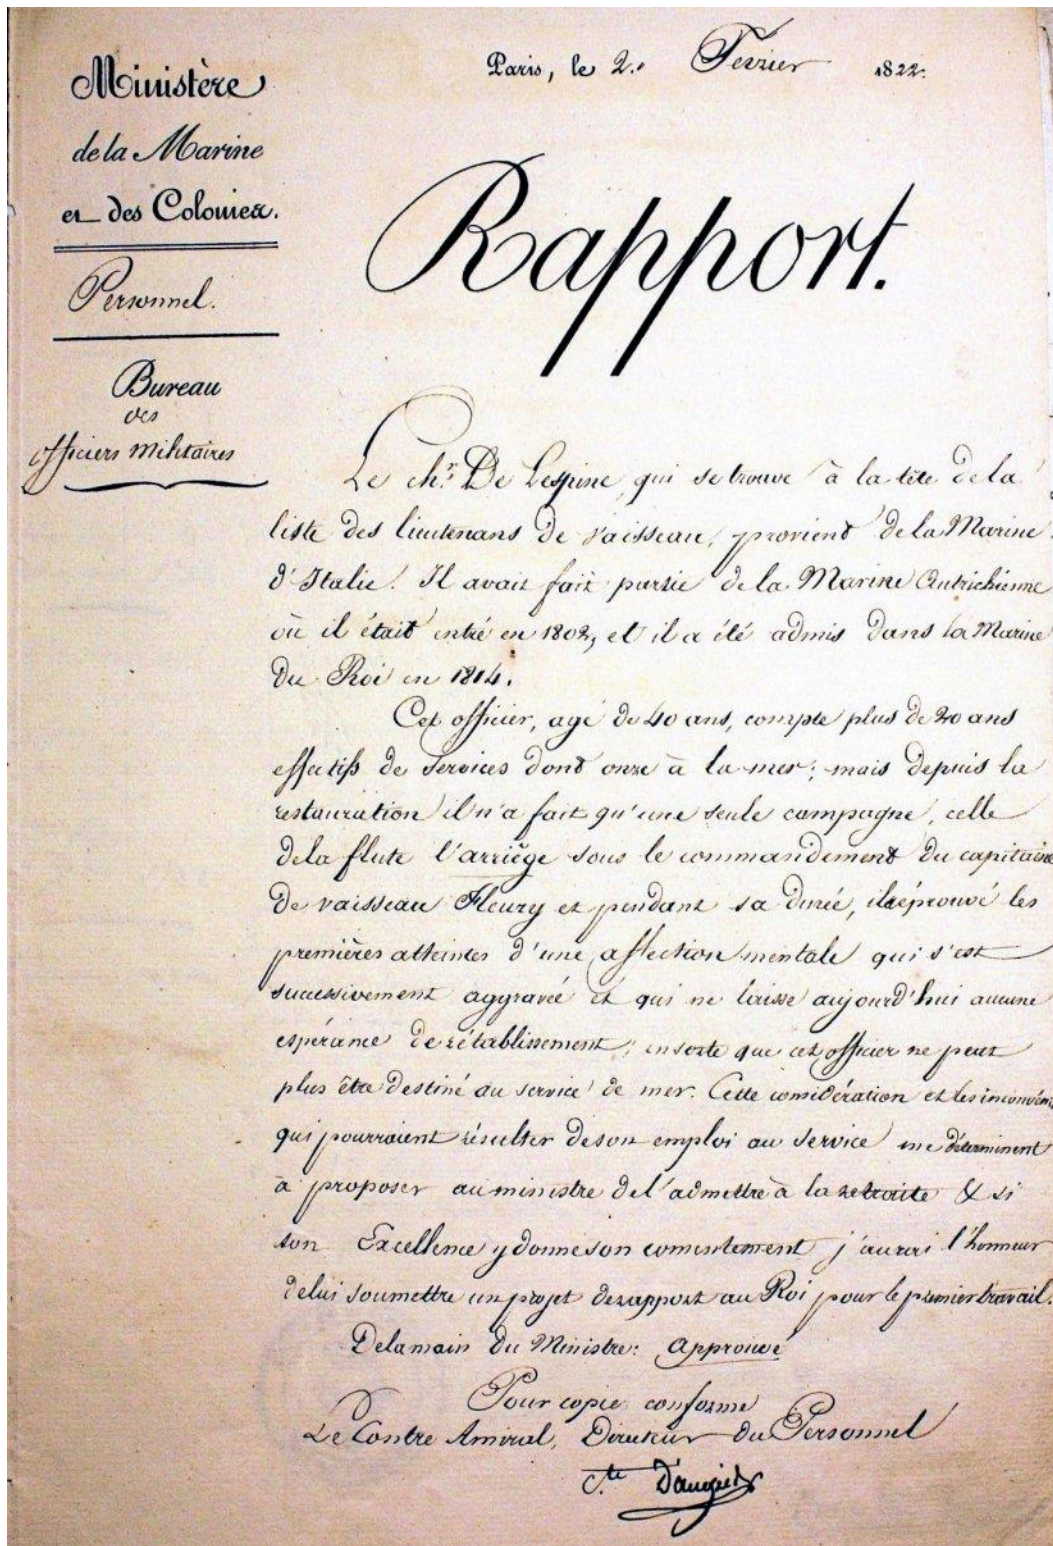 Ministère
de la Marine
et des Colonies.
Personnel.
Bureau
des
officiers militaires
Paris, le 2. Fevrier 1822.
Rapport.
Le chr. De Lespine, qui se trouve à la tête de la
liste des lieutenans de vaisseau, provient de la Marine
d'Italie. Il avait fait partie de la Marine Autrichienne
où il était entré en 1802, et il a été admis dans la Marine
du Roi en 1814.
Cet officier, agé de 40 ans, compte plus de 20 ans
effectifs de services dont onze à la mer; mais depuis la
restauration il n'a fait qu'une seule campagne, celle
de la flute l'arriège sous le commandement du capitaine
de vaisseau Fleury et pendant sa durée, il a éprouvé les
premières atteintes d'une affection mentale qui s'est
successivement aggravée et qui ne laisse aujourd'hui aucune
espérance de rétablissement; ensorte que cet officier ne peut
plus être destiné au service de mer. Cette considération et les inconvén.
qui pourraient résulter de son emploi au service me déterminent
à proposer au ministre de l'admettre à la retraite & si
son Excellence y donne son consentement j'aurai l'honneur
de lui soumettre un projet de rapport au Roi pour le premier travail.
De la main du Ministre: Approuvé
Pour copie conforme
Le Contre Amiral, Directeur du Personnel
Cte. Daugier